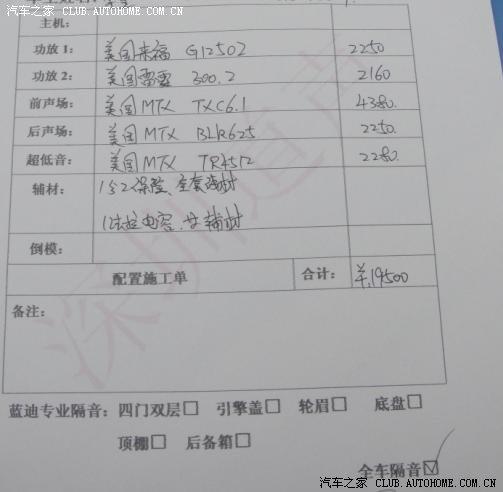 汽车之家 CLUB.AUTOHOME.COM.CN
主机:
功放 1: 美国来福 G12502 2250
功放 2: 美国雷雷 300.2 2160
前声场: 美国MTX TXC6.1 4380.
后声场: 美国MTX BLR625 2250.
超低音: 美国MTX TR4512 2280.
辅材: 1分2保险、全套辅材
1法拉电容、
倒模:
配置施工单 合计: ¥19500
备注:
深圳道声
蓝迪专业隔音: 四门双层□ 引擎盖□ 轮眉□ 底盘□
顶棚□ 后备箱□
全车隔音☑
汽车之家 CLUB.AUTOHOME.COM.CN